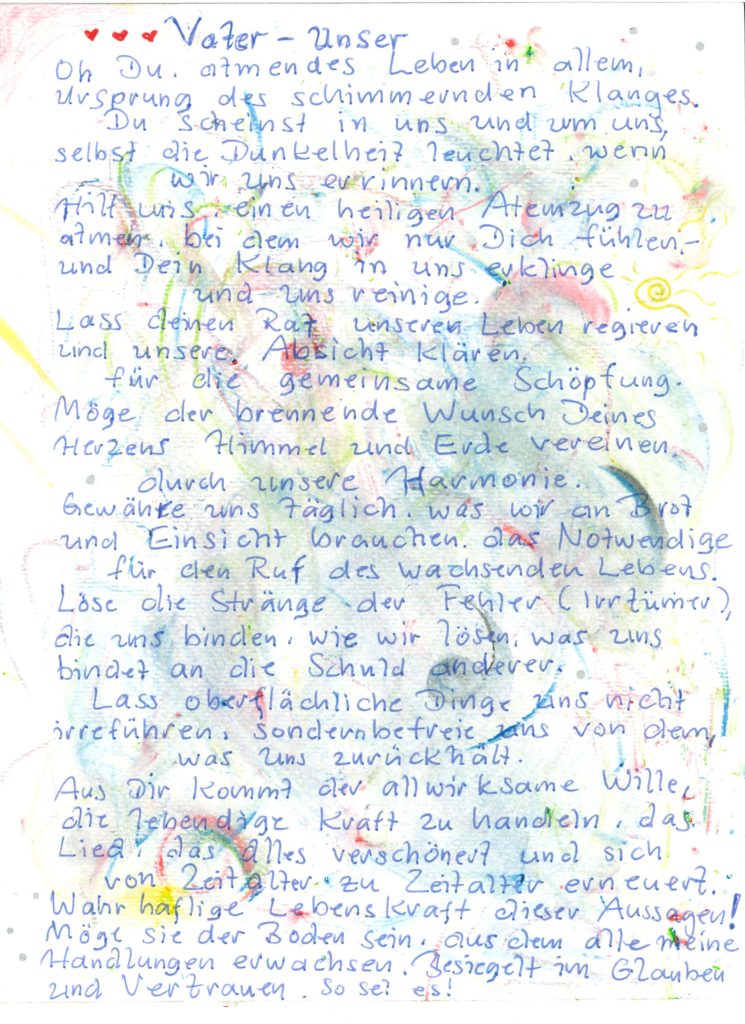 Vater - Unser
Oh Du. atmendes Leben in allem,
Ursprung des schimmernden Klanges.
Du scheinst in uns und um uns,
selbst die Dunkelheit leuchtet. wenn
wir uns errinnern.
Hilf uns. einen heiligen Atemzug zu
atmen. bei dem wir nur Dich fühlen.-
und Dein Klang in uns erklinge
und uns reinige.
Lass deinen Rat unseren Leben regieren
und unsere Absicht klären.
für die gemeinsame Schöpfung.
Möge der brennende Wunsch Deines
Herzens Himmel und Erde vereinen.
durch unsere Harmonie.
Gewähre uns täglich. was wir an Brot
und Einsicht brauchen. das Notwendige
für den Ruf des wachsenden Lebens.
Löse die Stränge der Fehler (Irrtümer),
die uns binden. wie wir lösen. was uns
bindet an die Schuld anderer.
Lass oberflächliche Dinge uns nicht
irreführen. sondern befreie uns von dem,
was uns zurückhält.
Aus Dir kommt der allwirksame Wille,
die lebendige Kraft zu handeln. das
Lied. das alles verschönert und sich
von Zeitalter zu Zeitalter erneuert.
Wahrhaftige Lebenskraft dieser Aussagen!
Möge sie der Boden sein. aus dem alle meine
Handlungen erwachsen. Besiegelt im Glauben
und Vertrauen. So sei es!